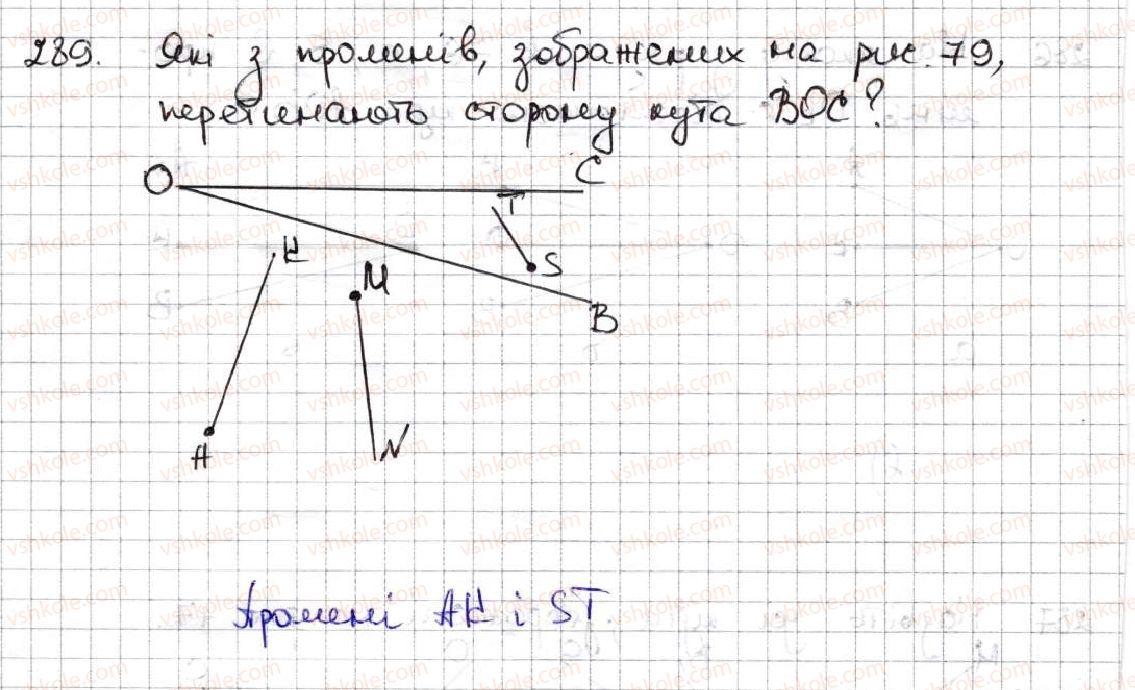 289. Які з променів, зображених на рис. 79,
перетинають сторону кута BOC?
O
C
T
K
S
M
B
A
N
Промені AK і ST.
vshkole.com